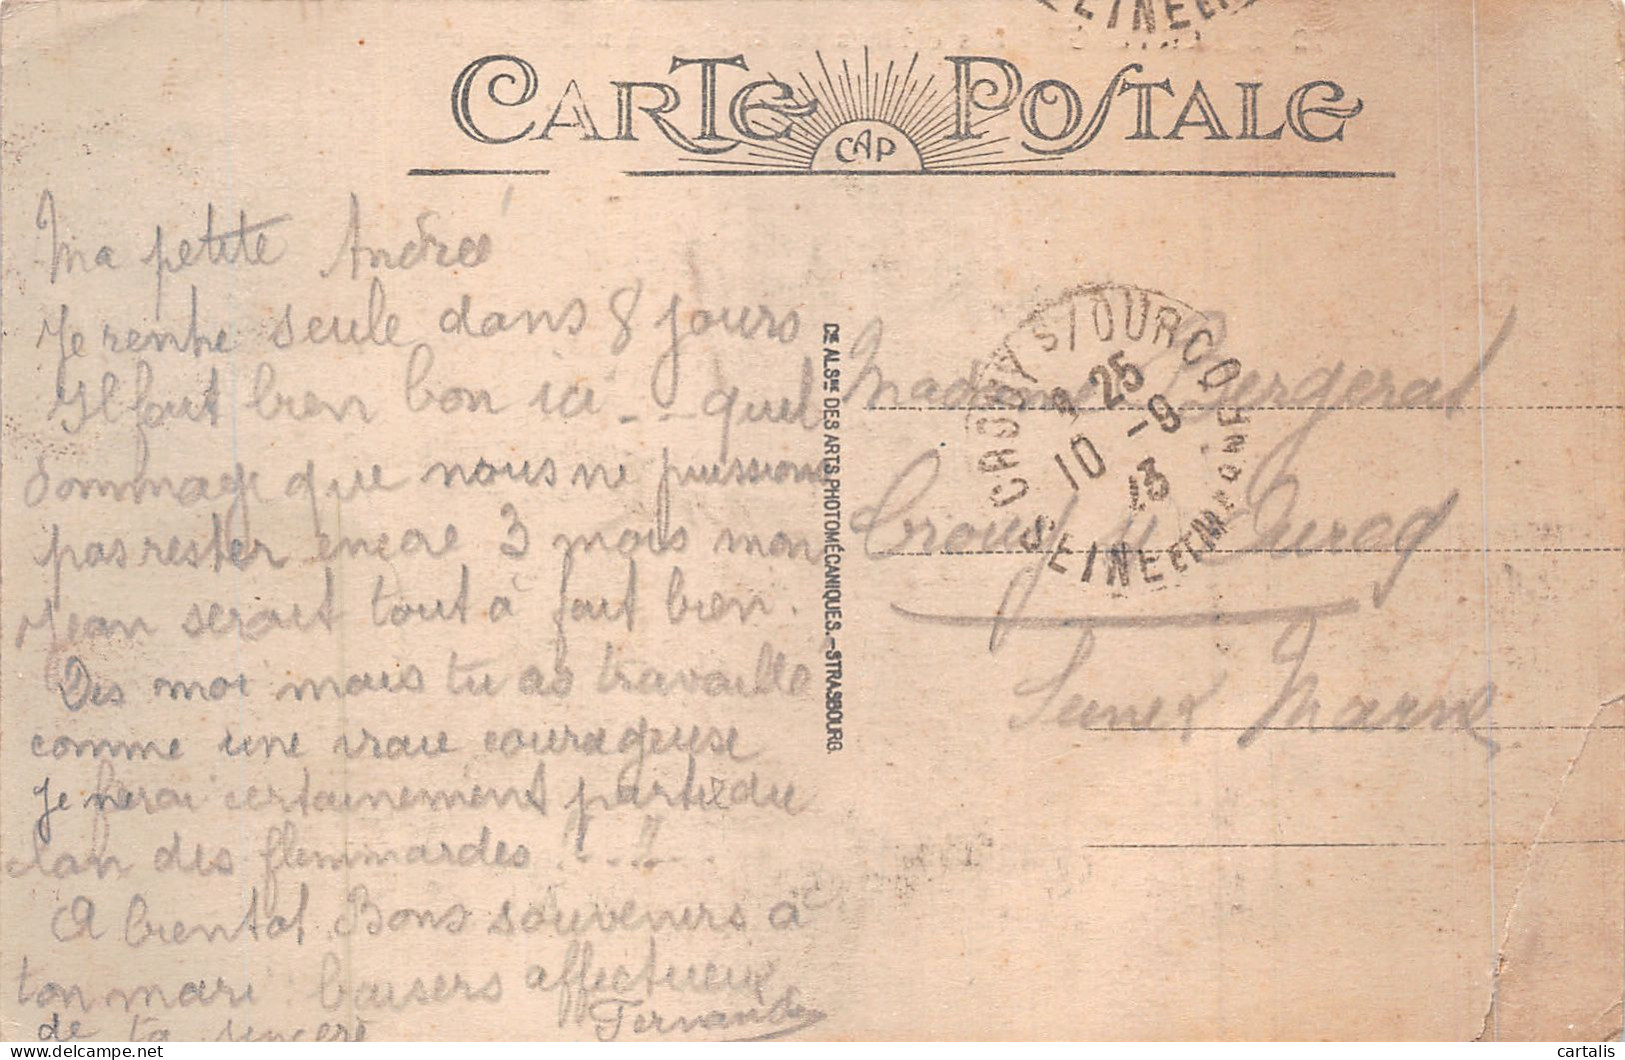 CARTE POSTALE
CAP
Ma petite André
Je rentre seule dans 8 jours
Il fait bien bon ici - - quel
dommage que nous ne puissions
pas rester encore 3 mois mon
Jean serait tout à fait bien.
Dis moi mais tu as travaillé
comme une vraie courageuse
Je ferai certainement partie du
clan des flemmardes
A bientot Bons souvenirs à
ton mari baisers affectueux
de ta sincère Fernande
CIE ALSNE DES ARTS PHOTOMÉCANIQUES.-STRASBOURG.
CROUY S/OURCQ
25
10 -9
SEINE ET M
Madame Bergerat
Crouy s/ Ourcq
Seine et Marne
cartalis
delcampe.net